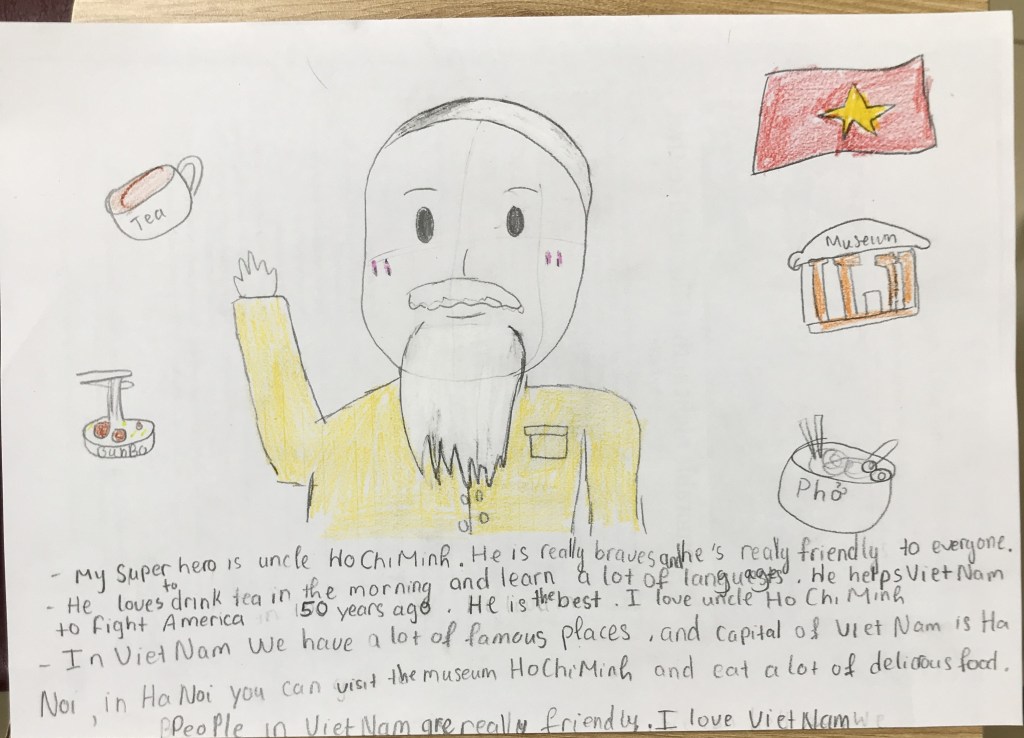 Tea
Museum
BunBo
Phở
- My Super hero is uncle HoChiMinh. He is really braves and he's realy friendly to everyone.
- He loves to drink tea in the morning and learn a lot of languages. He helps Viet Nam
to fight America in 50 years ago. He is the best. I love uncle Ho Chi Minh
- In Viet Nam We have a lot of famous places, and capital of Viet Nam is Ha
Noi, in Ha Noi you can visit the museum HoChiMinh and eat a lot of delicious food.
People in Viet Nam are really friendly. I love Viet Nam